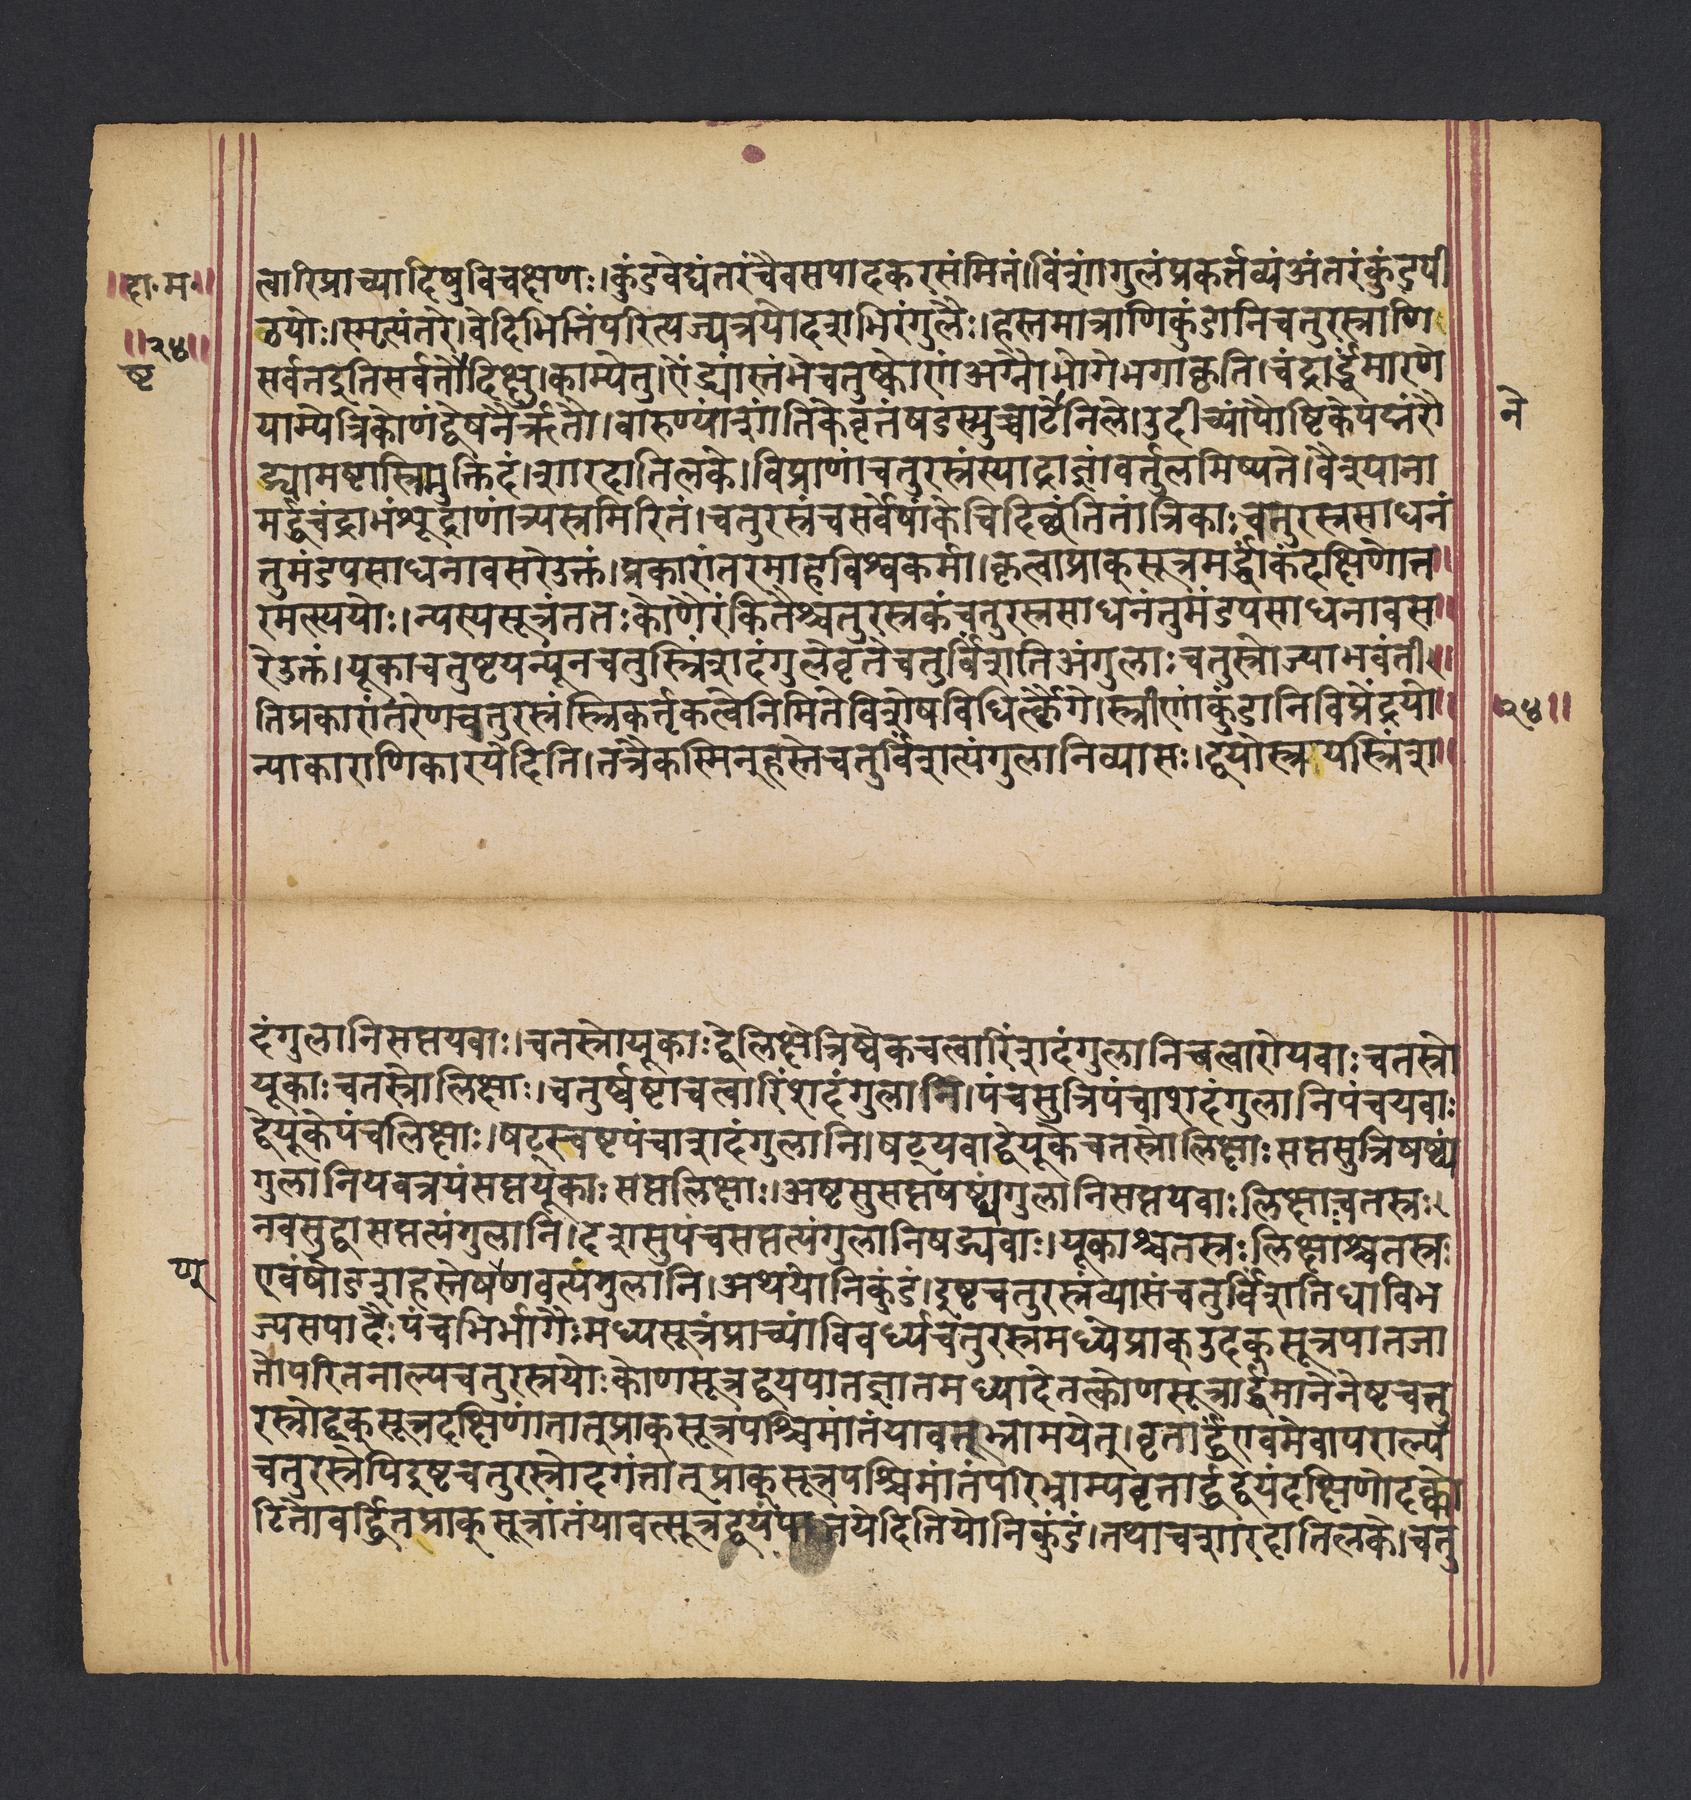 ॥हा॰म॰॥
त्वारिप्राच्यादिषुविचक्षणः।कुंडवेद्यंतरंचैवसपादकरसंमितं।विंशांगुलंप्रकर्तव्यंअंतरंकुंडपी
ठयोः।स्मृत्यंतरे।वेदिभित्तिंपरित्यज्यत्रयोदशभिरंगुलैः।हस्तमात्राणिकुंडानिचतुरस्त्राणि
॥२४॥
ष्ट
सर्वतइतिसर्वतोदिक्षु।काम्येतु।ऐंद्र्यांस्तंभेचतुष्कोणंअग्नौभोगेभगाकृति।चंद्रार्द्धंमारणे
याम्येत्रिकोणंद्वेषनैर्ऋतौ।वारुण्यांशांतिकेवृत्तंषडस्त्रुच्चाटेनिले।उदीच्यांपौष्टिकेपद्मंरौ
ने
द्र्यामष्टास्त्रिमुक्तिदं।शारदातिलके।विप्राणांचतुरस्त्रंस्याद्राज्ञांवर्तुलमिष्यते।वैश्याना
मर्द्धचंद्राभंशूद्राणांत्र्यस्त्रमिरितं।चतुरस्त्रंचसर्वेषांकेचिदिच्छंतितांत्रिकाःचतुरस्त्रसाधनं
तुमंडपसाधनावसरेउक्तं।प्रकारांतरमाहविश्वकर्मा।कृत्वाप्राक्सूत्रमर्द्धांकंदक्षिणोत्त॥
रमत्स्ययोः।न्यस्यसूत्रंततःकोणैरंकितैश्चतुरस्त्रकंचतुरस्त्रसाधनंतुमंडपसाधनावस॥
रेउक्तं।यूकाचतुष्टयन्यूनचतुस्त्रिंशदंगुलेवृत्तेचतुर्विंशतिअंगुलाःचतुस्त्रोज्याभवंती॥
तिप्रकारांतरेणचतुरस्त्रंस्त्रिकर्तृकत्वेनिमित्तेविशेषविधिर्लैंगे।स्त्रीणांकुंडानिविप्रेंद्रयो॥
॥२४॥
न्याकाराणिकारयेदिति।तत्रैकस्मिन्हस्तेचतुर्विंशत्यंगुलानिव्यासः।द्वयोस्त्रयस्त्रिंश॥
दंगुलानिसप्तयवाः।चतस्त्रोयूकाःद्वेलिक्षेत्रिष्वेकचत्वारिंशदंगुलानिचत्वारोयवाःचतस्त्रो
यूकाःचतस्त्रोलिक्षाः।चतुर्ष्वष्टाचत्वारिंशदंगुलानि।पंचसुत्रिपंचाशदंगुलानिपंचयवाः
द्वेयूकेपंचलिक्षाः।षट्स्वष्टपंचाशदंगुलानि।षट्यवाद्वेयूकेचतस्त्रोलिक्षाःसप्तसुत्रिषष्ट्यं
गुलानियवत्रयंसप्तयूकाःसप्तलिक्षाः।अष्टसुसप्तषष्ट्यंगुलानिसप्तयवाःलिक्षाचतस्त्रः।
नवसुद्वासप्तत्यंगुलानि।दशसुपंचसप्तत्यंगुलानिषड्यवाः।यूकाश्चतस्त्रःलिक्षाश्चतस्त्रः
ण्
एवंषोडशहस्तेषण्णवत्यंगुलानि।अथयोनिकुंडं।इष्टचतुरस्त्रंव्यासंचतुर्विंशतिधाविभ
ज्यसपादैःपंचभिर्भागैःमध्यसूत्रंप्राच्यांविवर्ध्यचतुरस्त्रमध्येप्राक्उदक्सूत्रपातजा
तोपरितनाल्पचतुरस्त्रयोःकोणसूत्रद्वयपातज्ञातमध्यादेतत्कोणसूत्रार्द्धमानेनेष्टचतु
रस्त्रोद्दक्सूत्रदक्षिणांतात्प्राक्सूत्रपश्चिमांतंयावत्भ्रामयेत्।वृत्तार्द्धंएवमेवापराल्प
चतुरस्त्रेपिइष्टचतुरस्त्रोदगंतात्प्राक्सूत्रपश्चिमांतंपरिभ्राम्यवृत्तार्द्धद्वयंदक्षिणोदक्को
टितोवर्द्धितप्राक्सूत्रांतंयावत्सूत्रंद्वयंपातयेदितियोनिकुंडं।तथाचशारदातिलके।चतु